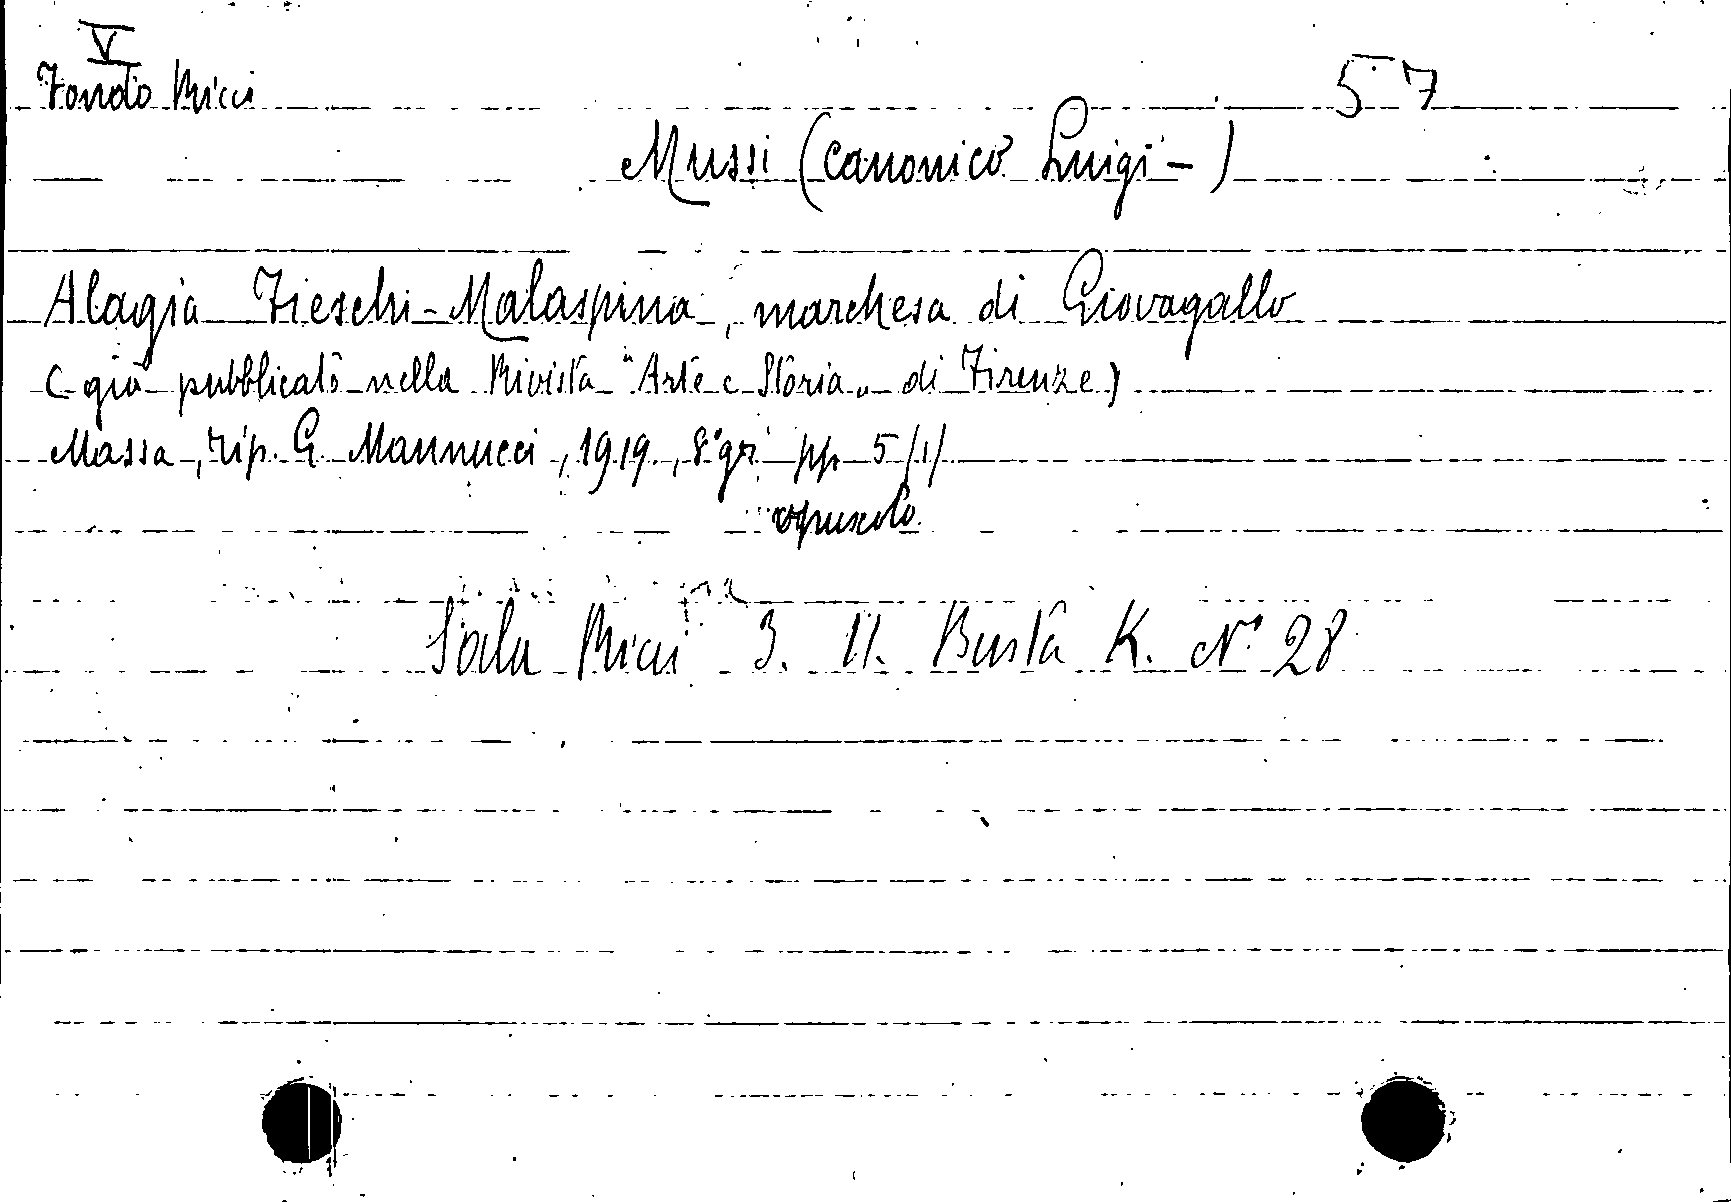 V
Fondo Ricci
57
Mussi (canonico Luigi -)
Alagia Fieschi-Malaspina, marchesa di Giovagallo
(già pubblicato nella Rivista "Arte e Storia" di Firenze)
Massa, tip. G. Mannucci, 1919, 8° gr. pp. 5/1/
opuscolo
Sala Ricci 3. 11. Busta K. N° 28